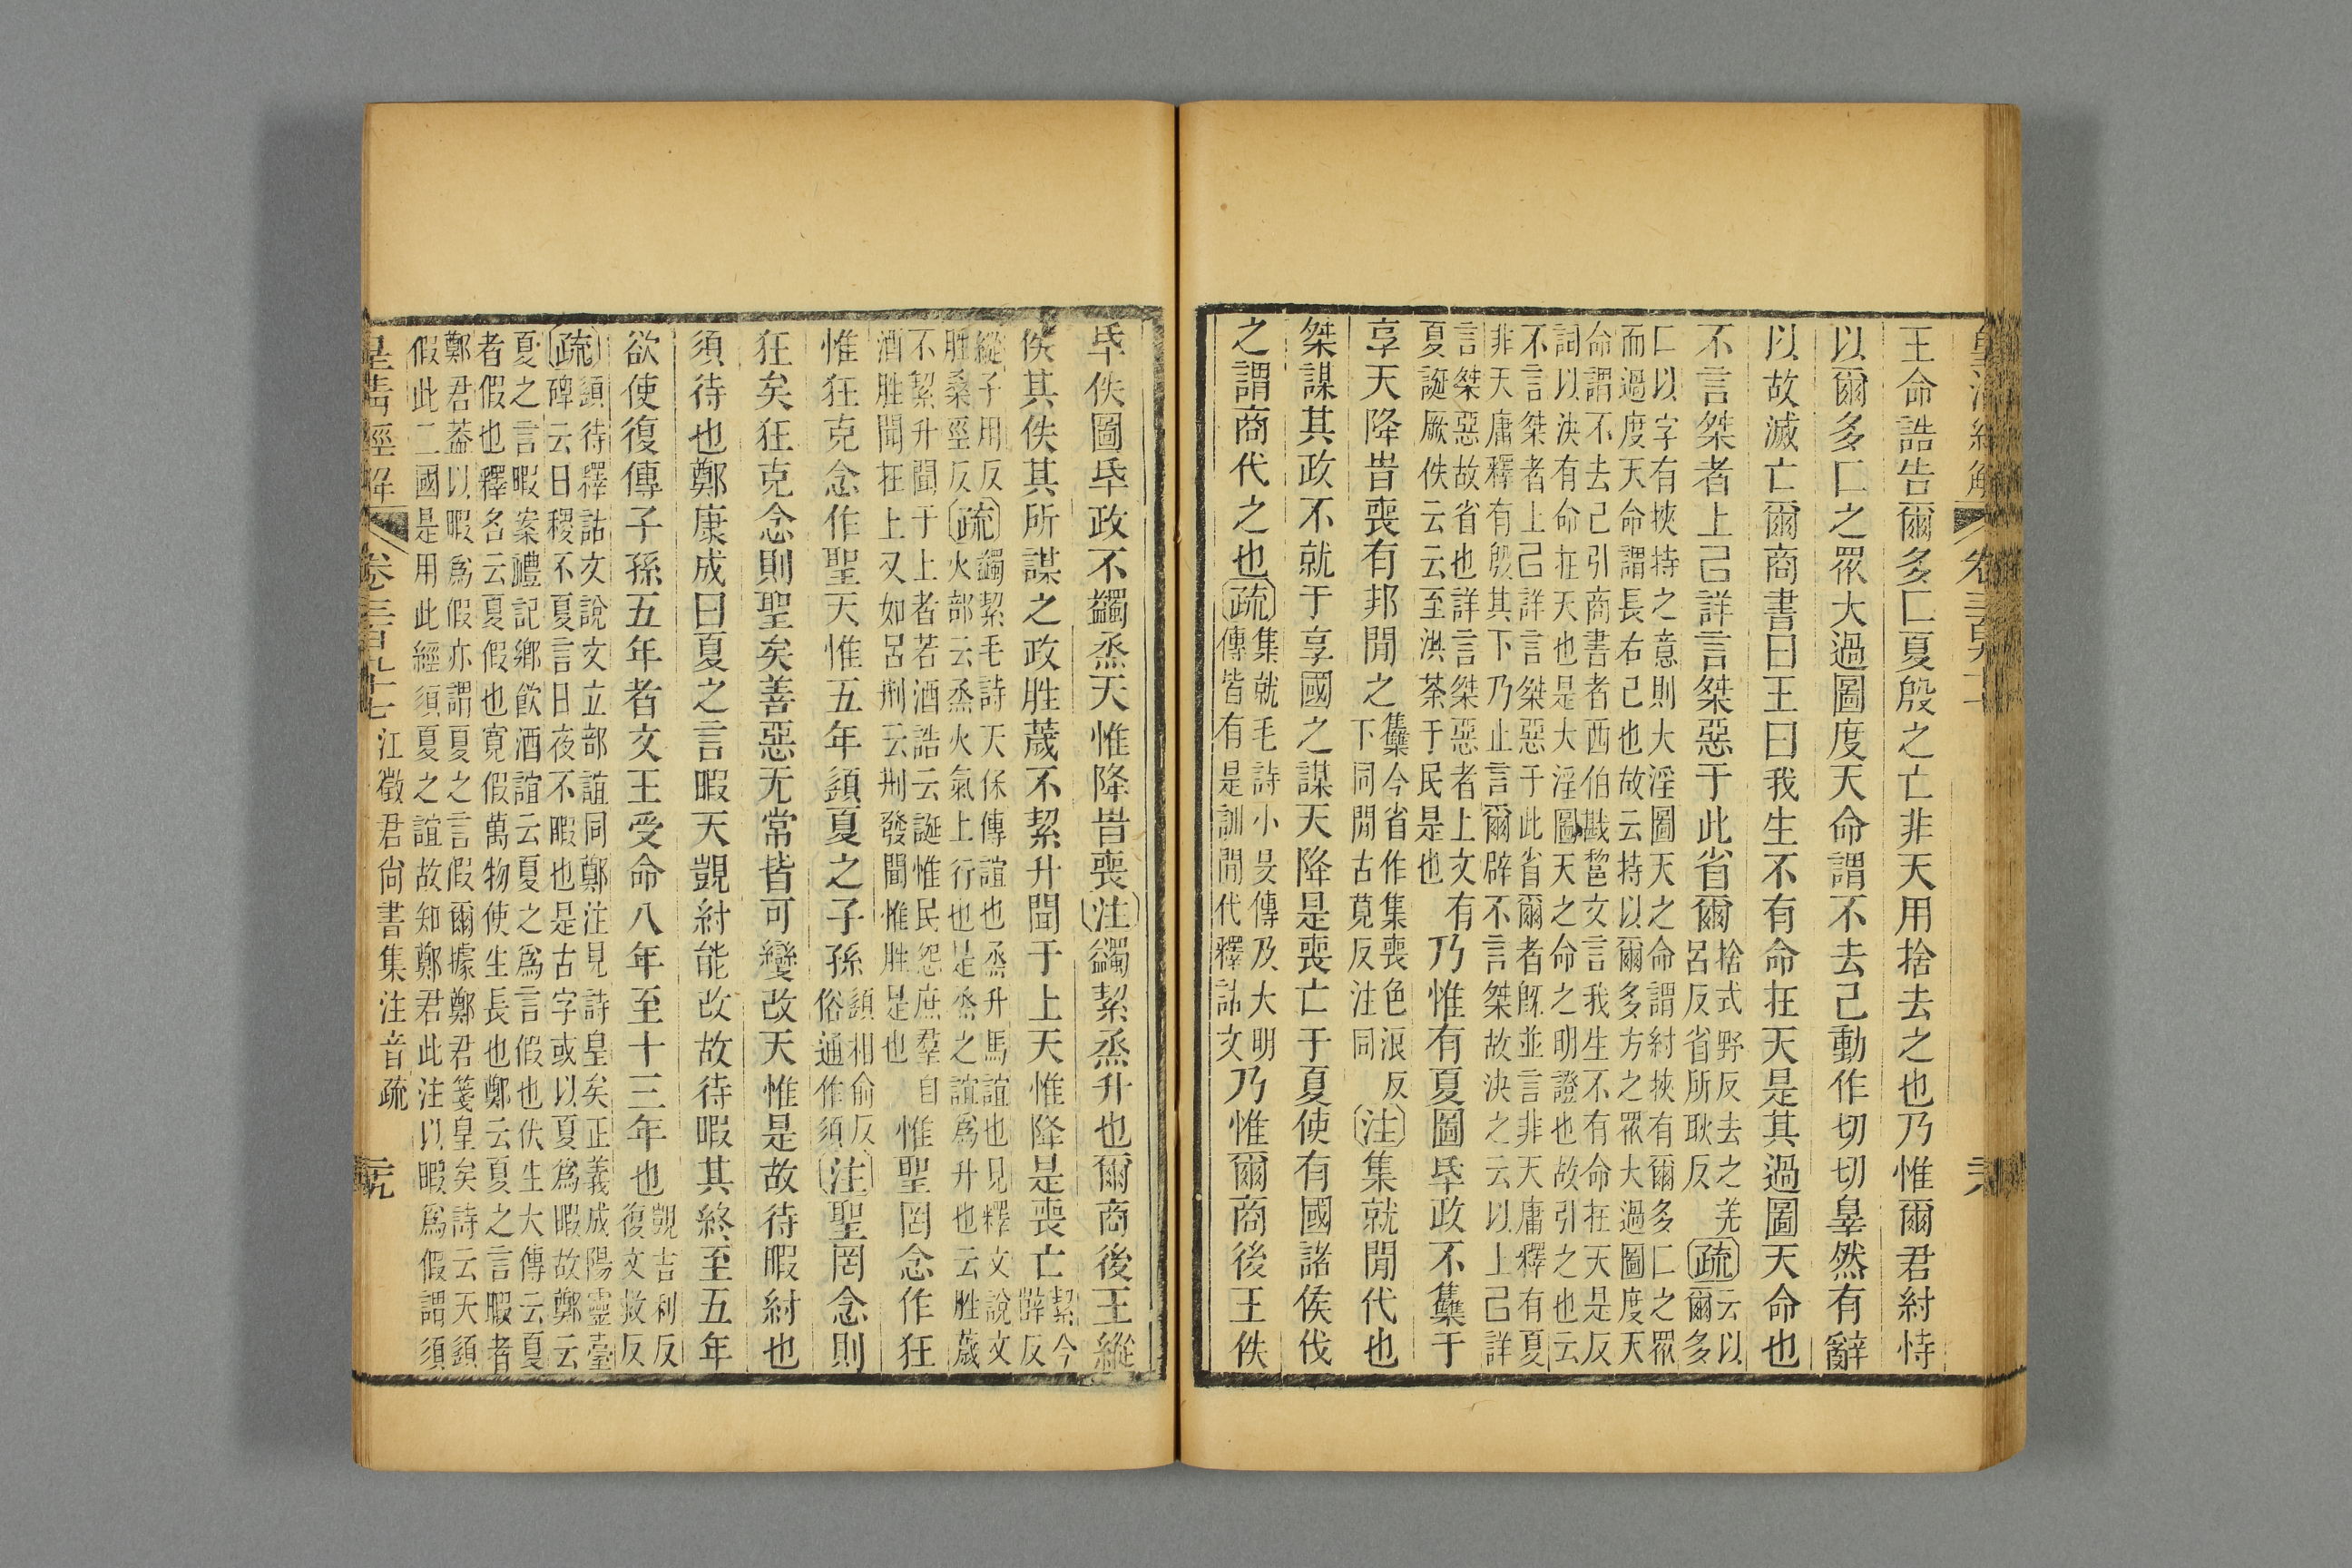 皇清經解 卷三百九十七
王命誥告爾多匚夏殷之亡非天用捨去之也乃惟爾君紂恃
以爾多匚之眾大過圖度天命謂不去己動作切切辠然有辭
以故滅亡爾商書曰王曰我生不有命在天是其過圖天命也
不言桀者上已詳言桀惡于此省爾捨式野反去之羌呂反省所耿反疏云以爾多
匚以字有挾持之意則大淫圖天之命謂紂挾有爾多匚之眾
而過度天命謂長右己也故云持以爾多方之眾大過圖度天
命謂不去己引商書者西伯戡𨛫文言我生不有命在天是反
詞以決有命在天也是大淫圖天之命之明證也故引之也云
不言桀者上已詳言桀惡于此省爾者旣並言非天庸釋有夏
非天庸釋有殷其下乃止言爾辟不言桀故決之云以上已詳
言桀惡故省也詳言桀惡者上文有
夏誕厥佚云云至洪荼于民是也
乃惟有夏圖氒政不雧于
享天降旹喪有邦閒之雧今省作集喪色浪反下同閒古莧反注同注集就閒代也
桀謀其政不就于享國之謀天降是喪亡于夏使有國諸侯伐
之謂商代之也疏集就毛詩小旻傳及大明傳皆有是訓閒代釋詁文乃惟爾商後王佚
氒佚圖氒政不蠲烝天惟降旹喪注蠲絜烝升也爾商後王縱
佚其佚其所謀之政胜薉不絜升聞于上天惟降是喪亡絜今辥反
縱子用反胜桑巠反疏蠲絜毛詩天保傳誼也烝升馬誼也見釋文說文
火部云烝火氣上行也是烝之誼爲升也云胜薉
不絜升聞于上者若酒誥云誕惟民怨庶羣自
酒胜聞在上又如呂荆云荆發聞惟胜是也
惟聖罔念作狂
惟狂克念作聖天惟五年頾夏之子孫頾相俞反俗通作須注聖罔念則
狂矣狂克念則聖矣善惡无常皆可變改天惟是故待暇紂也
須待也鄭康成曰夏之言暇天覬紂能改故待暇其終至五年
欲使復傳子孫五年者文王受命八年至十三年也覬吉利反復文救反
疏頾待釋詁文說文立部誼同鄭注見詩皇矣正義成陽靈臺
碑云日稷不夏言日夜不暇也是古字或以夏爲暇故鄭云
夏之言暇案禮記鄉飮酒誼云夏之爲言假也伏生大傳云夏
者假也釋名云夏假也寬假萬物使生長也鄭云夏之言暇者
鄭君葢以暇爲假亦謂夏之言假爾據鄭君箋皇矣詩云天頾
假此二國是用此經須夏之誼故知鄭君此注以暇爲假謂須
皇清經解 卷三百九十七 江徵君尙書集注音疏 二九